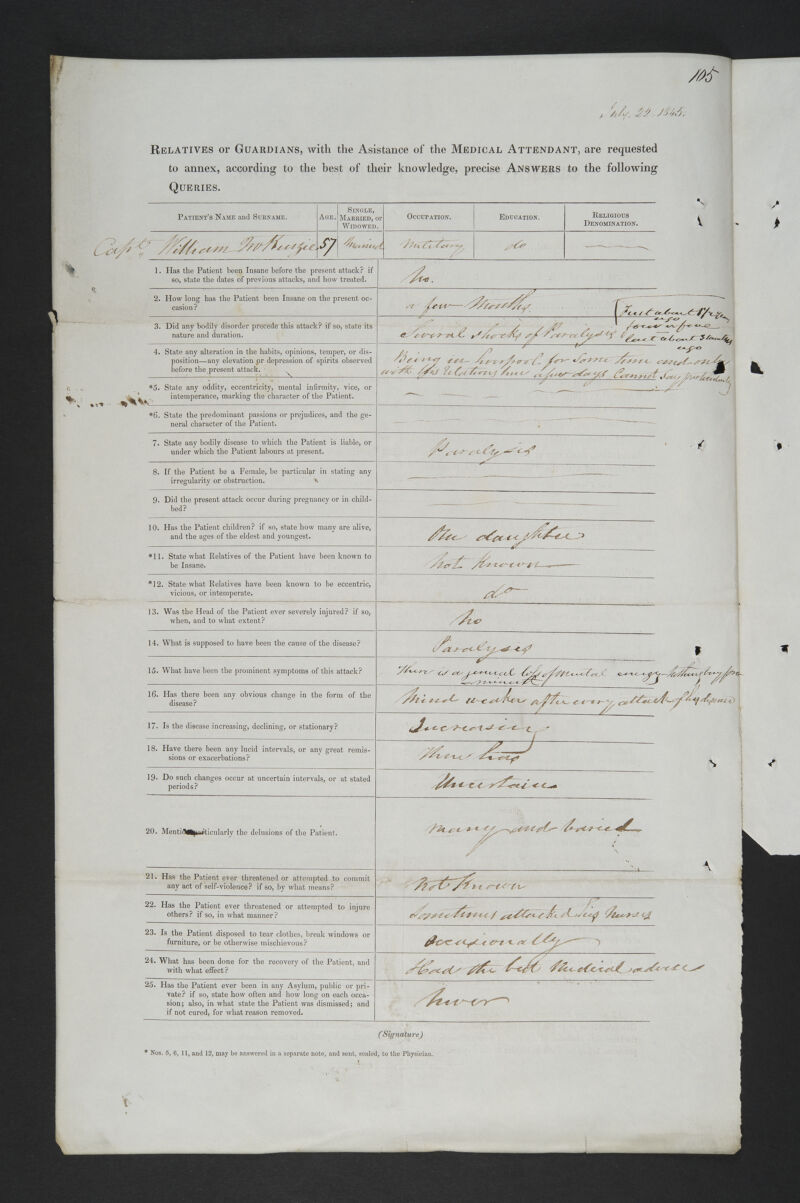 105
July 29 1845.
RELATIVES or GUARDIANS, with the Asistance of the MEDICAL ATTENDANT, are requested
to annex, according to the best of their knowledge, precise ANSWERS to the following
QUERIES.
PATIENT'S NAME and SURNAME. AGE. SINGLE, MARRIED, or WIDOWED. OCCUPATION. EDUCATION. RELIGIOUS DENOMINATION.
Capt. William McKenzie 57 Married Military do
1. Has the Patient been Insane before the present attack? if
so, state the dates of previous attacks, and how treated.
No.
2. How long has the Patient been Insane on the present oc-
casion?
a few Months
3. Did any bodily disorder precede this attack? if so, state its
nature and duration.
Several shocks of Paralysis
First about
ago
four or five
last about 3 months
ago
4. State any alteration in the habits, opinions, temper, or dis-
position—any elevation or depression of spirits observed
before the present attack.
Being in Liverpool for some time and only
with his relations here a few days Cannot say
*5. State any oddity, eccentricity, mental infirmity, vice, or
intemperance, marking the character of the Patient.
*6. State the predominant passions or prejudices, and the ge-
neral character of the Patient.
7. State any bodily disease to which the Patient is liable, or
under which the Patient labours at present.
Paralysis
8. If the Patient be a Female, be particular in stating any
irregularity or obstruction.
9. Did the present attack occur during pregnancy or in child-
bed?
10. Has the Patient children? if so, state how many are alive,
and the ages of the eldest and youngest.
One daughter
*11. State what Relatives of the Patient have been known to
be Insane.
Not Known
*12. State what Relatives have been known to be eccentric,
vicious, or intemperate.
do
13. Was the Head of the Patient ever severely injured? if so,
when, and to what extent?
No
14. What is supposed to have been the cause of the disease?
Paralysis
15. What have been the prominent symptoms of this attack?
There is a general loss of mental energy nothing very
prominent
16. Has there been any obvious change in the form of the
disease?
Mind weaker after every attack of his disease
17. Is the disease increasing, declining, or stationary?
Increasing
18. Have there been any lucid intervals, or any great remis-
sions or exacerbations?
There has
19. Do such changes occur at uncertain intervals, or at stated
periods?
Uncertain
20. Mention particularly the delusions of the Patient.
many and varied
21. Has the Patient ever threatened or attempted to commit
any act of self-violence? if so, by what means?
Not Known
22. Has the Patient ever threatened or attempted to injure
others? if so, in what manner?
Sometimes attacked his Nurses
23. Is the Patient disposed to tear clothes, break windows or
furniture, or be otherwise mischievous?
Occasionally
24. What has been done for the recovery of the Patient, and
with what effect?
Had the best Medical advice
25. Has the Patient ever been in any Asylum, public or pri-
vate? if so, state how often and how long on each occa-
sion; also, in what state the Patient was dismissed; and
if not cured, for what reason removed.
Never
(Signature)
* Nos. 5, 6, 11, and 12, may be answered in a separate note, and sent, sealed, to the Physician.